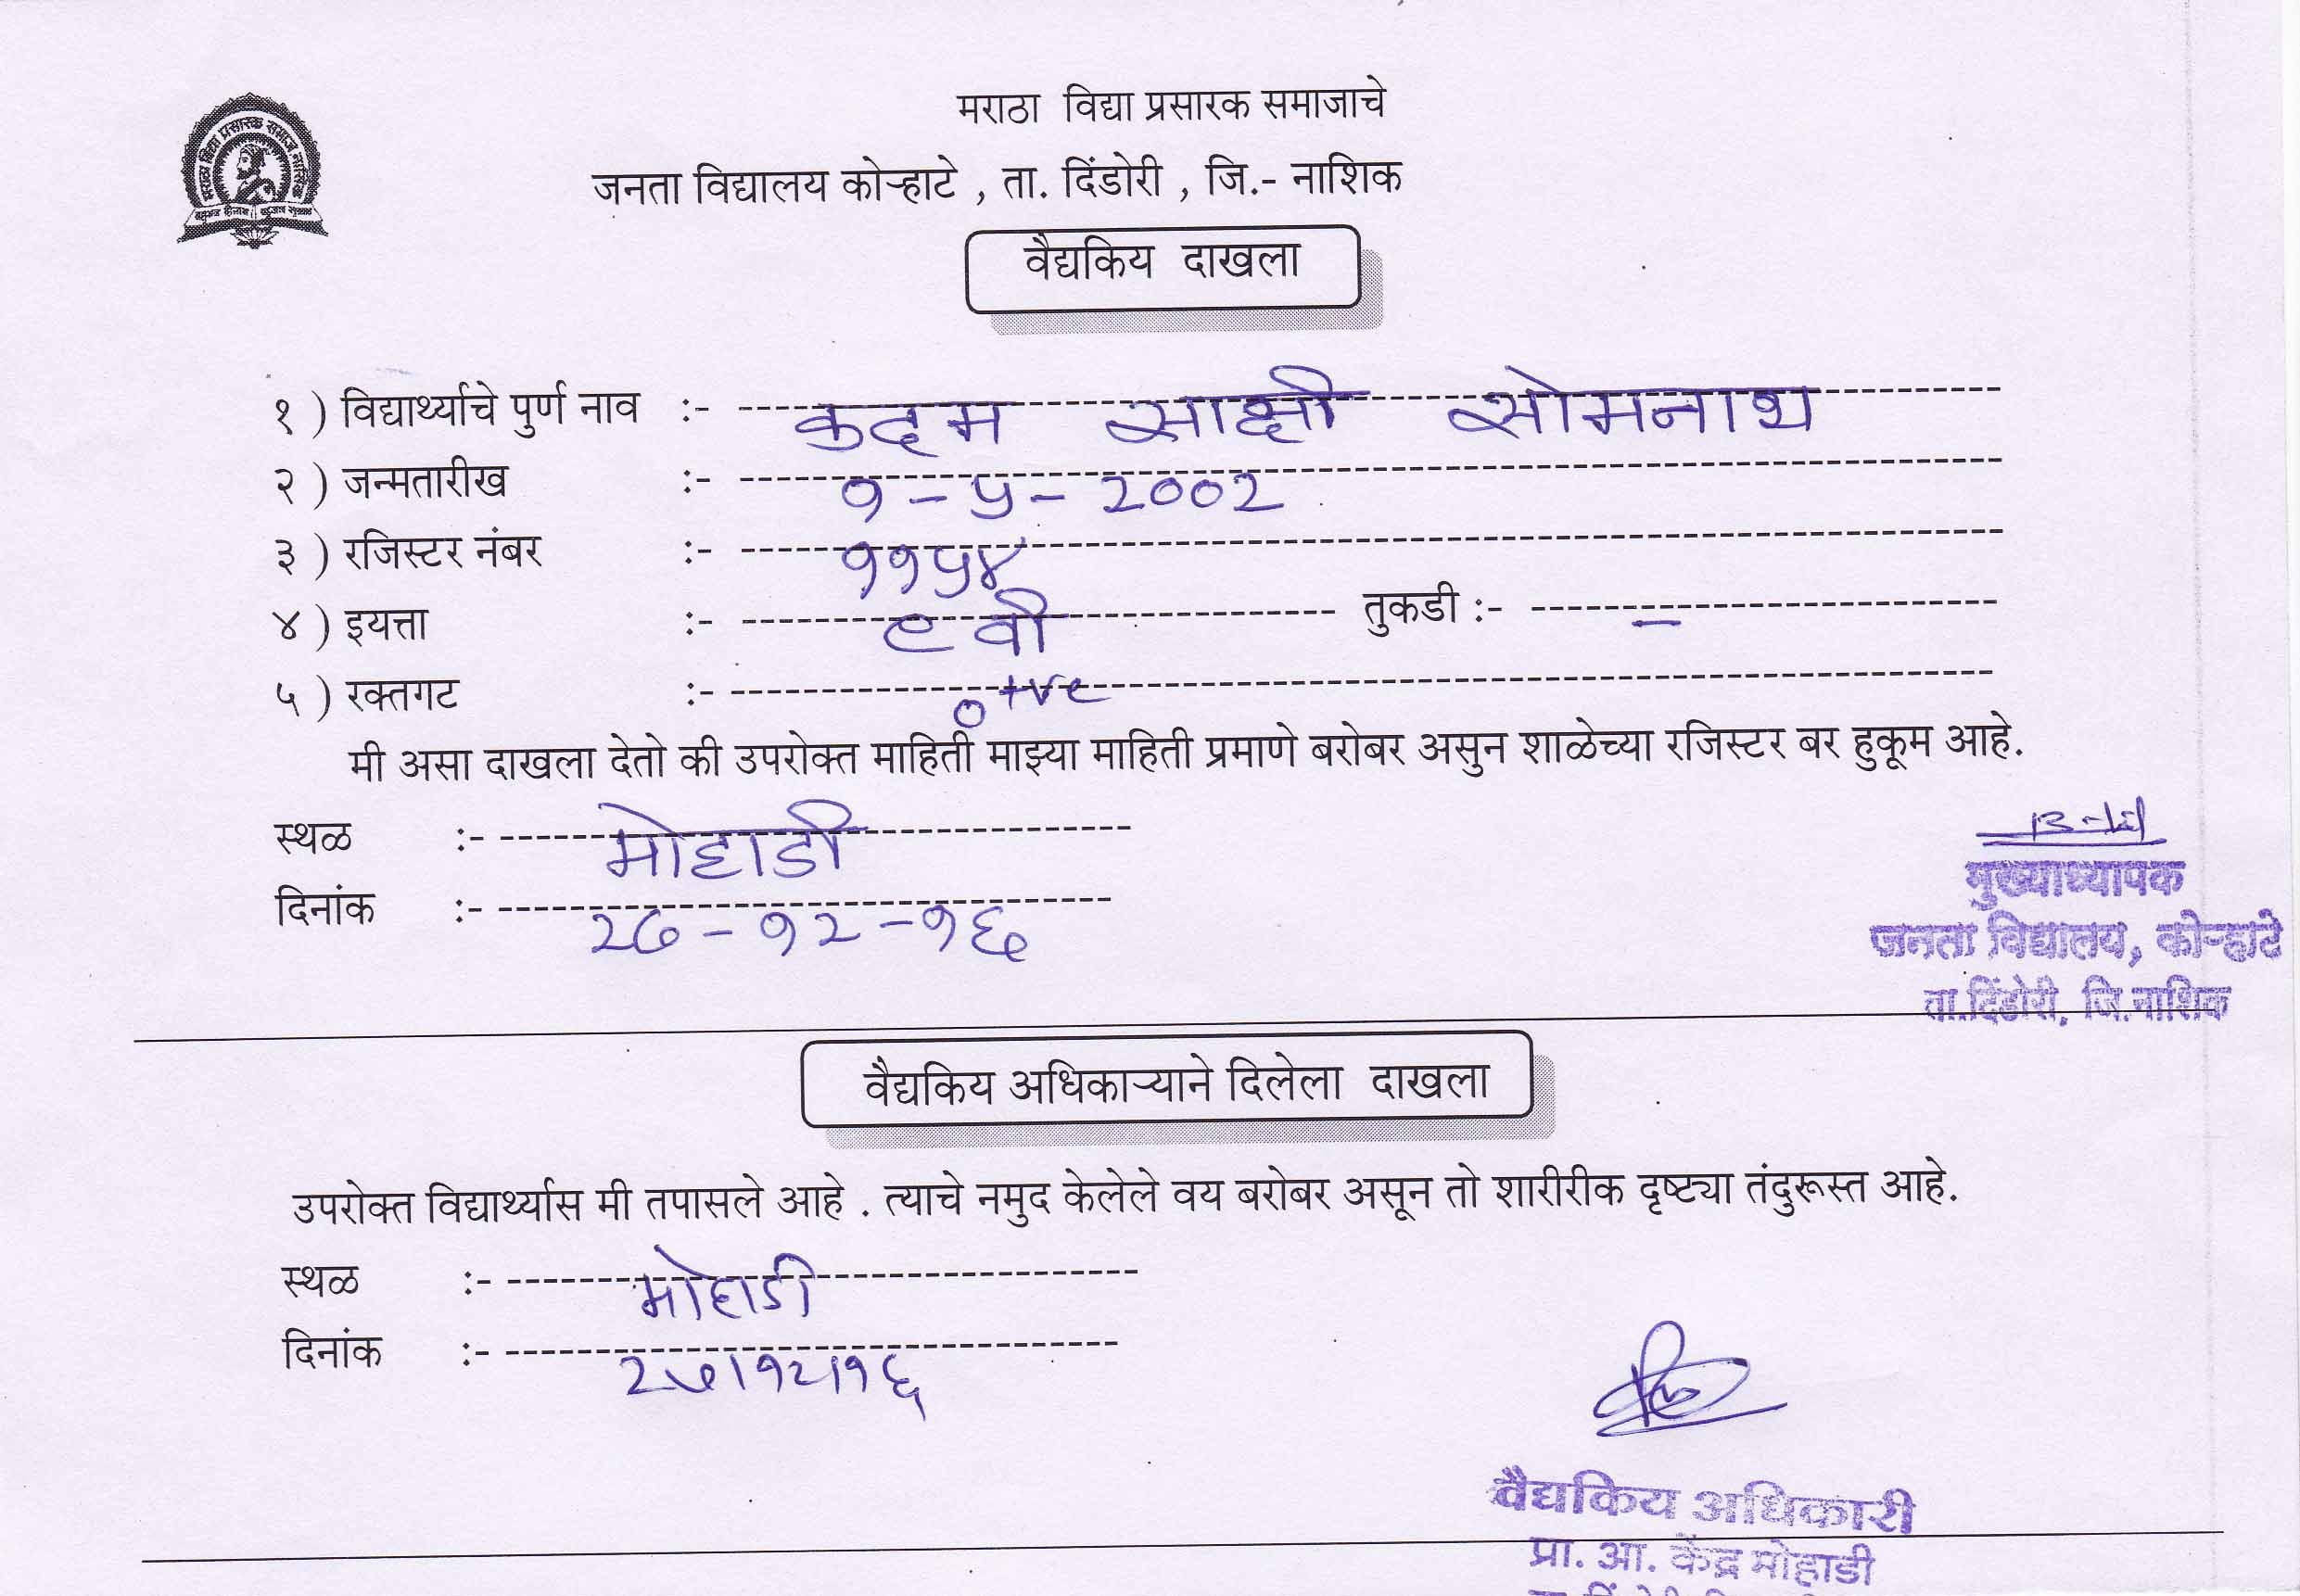 मराठा विद्या प्रसारक समाजाचे
मराठा विद्या प्रसारक समाज नाशिक
जनता विद्यालय कोऱ्हाटे , ता. दिंडोरी , जि.- नाशिक
वैद्यकिय दाखला
१ ) विद्यार्थ्याचे पुर्ण नाव :- कदम साक्षी सोमनाथ
२ ) जन्मतारीख :- १ - ५ - २००२
३ ) रजिस्टर नंबर :- ११५४
४ ) इयत्ता :- ९ वी तुकडी :- –
५ ) रक्तगट :- O +ve
मी असा दाखला देतो की उपरोक्त माहिती माझ्या माहिती प्रमाणे बरोबर असुन शाळेच्या रजिस्टर बर हुकूम आहे.
स्थळ :- मोहाडी
दिनांक :- २७ - १२ - १६
मुख्याध्यापक
जनता विद्यालय, कोऱ्हाटे
ता.दिंडोरी, जि.नाशिक
वैद्यकिय अधिकाऱ्याने दिलेला दाखला
उपरोक्त विद्यार्थ्यास मी तपासले आहे . त्याचे नमुद केलेले वय बरोबर असून तो शारीरीक दृष्ट्या तंदुरूस्त आहे.
स्थळ :- मोहाडी
दिनांक :- २७।१२।१६
वैद्यकिय अधिकारी
प्रा. आ. केंद्र मोहाडी